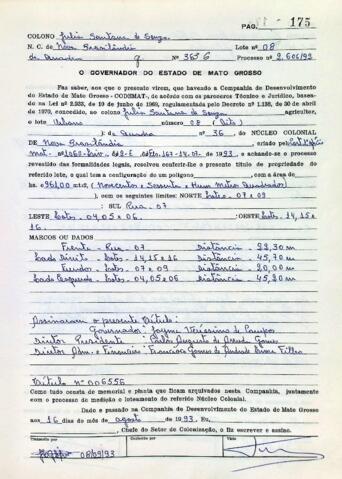 PÁG. 175
COLONO Julia Santana de Souza
N. C. de Nova Brasilândia Lote nº 08
da Quadra nº 36 Processo nº 2.606/93
O GOVERNADOR DO ESTADO DE MATO GROSSO
Faz saber, aos que o presente virem, que havendo a Companhia de Desenvolvimento
do Estado de Mato Grosso - CODEMAT, de acôrdo com os pareceres Técnico e Jurídico, basea-
do na Lei nº 2.933, de 19 de junho de 1969, regulamentada pelo Decreto nº 1.138, de 30 de abril
de 1970, concedido, ao colono Julia Santana de Souza agricultor,
o lote Urbano número 08 (Oito)
da Quadra nº 36 do NÚCLEO COLONIAL
DE Nova Brasilândia criado pel
1993, e achando-se o processo
revestido das formalidades legais, resolveu conferir-lhe o presente título de propriedade do
referido lote, o qual tem a configuração de um polígono com a área de
hs. 961,00 mts2 (Novecentos e Sessenta e Hum Metros Quadrados)
com os seguintes limites: NORTE Lotes - 07 e 09
SUL Rua - 07
LESTE Lotes - 04, 05 e 06 OESTE Lotes - 14, 15 e
16.
MARCOS OU DADOS
Frente - Rua - 07 Distância - 22,30 m
Lado Direito - Lotes - 14, 15 e 16 Distância - 45,70 m
Fundos - Lotes - 07 e 09 Distância - 20,00 m
Lado Esquerdo - Lotes - 04, 05 e 06 Distância - 45,20 m
Assinaram o presente Título:
Governador: Jayme Veríssimo de Campos
Diretor Presidente: Carlos Augusto de Arruda Gomes
Diretor Adm. e Financeiro: Francisco Gomes de Andrade Lima Filho
Título nº 006556
Como tudo consta de memorial e planta que ficam arquivados nesta Companhia, juntamente
com o processo de medição e loteamento do referido Núcleo Colonial.
Dado e passado na Companhia de Desenvolvimento do Estado de Mato Grosso
aos 16 dias do mês de agosto de 1993. Eu,
, Chefe do Setor de Colonização, o fiz escrever e assino.
Transcrito por Conferido por Visto
08/09/93